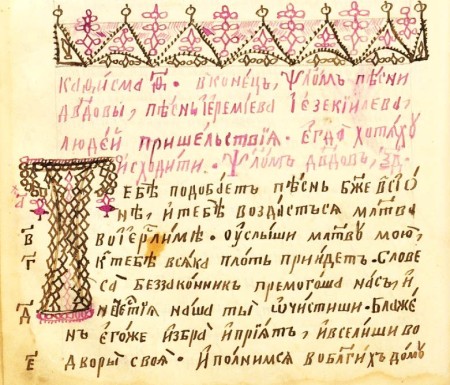 каѳисма ѳ҃. в конецъ, ѱаломъ пѣсни
дв҃довы, пѣснь іереміева і езекіилева,
людей пришельствія. егда хотяху
исходити. ѱаломъ дв҃довъ, ѯд.
Тебѣ подобаетъ пѣснь бж҃е в сіо
нѣ, и тебѣ воздастъся мл҃тва
в
во іер҃лимѣ. оуслыши мл҃тву мою,
г
к тебѣ всяка плоть прийдетъ. Слове
са беззаконникъ премогоша насъ, и
д
нечестія наша ты ѡчистиши. Блаже
нъ егоже избра и приятъ, и вселиши во
е
дворы своя. И полнимся во благихъ дому